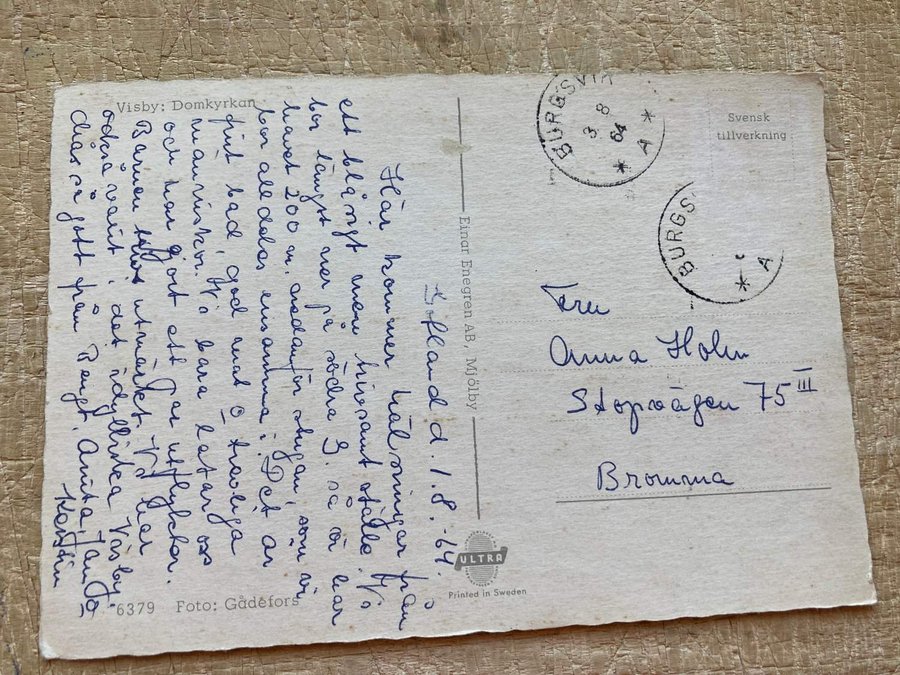 Visby: Domkyrkan
Gotland d. 1.8.-64.
Här kommer hälsningar från
ett blåsigt men trivsamt ställe. Vi
bor längst ner på södra G. så vi har
havet 200 m. nedanför stugan, som vi
bor alldeles ensamma i. Det är
fint bad, god mat o trevliga
människor. Vi bara latar oss
och har gjort ett par utflykter.
Barnen mår utmärkt. Vi har
också varit i det idylliska Visby.
så gott från Bengt, Anita, Jan o
Kerstin
6379 Foto: Gådefors
Einar Enegren AB, Mjölby
ULTRA
Printed in Sweden
BURGSVIK
3 8
64
* A *
BURGS
* A
Svensk
tillverkning
Fru
Anna Holm
Stopvägen 75 III
Bromma